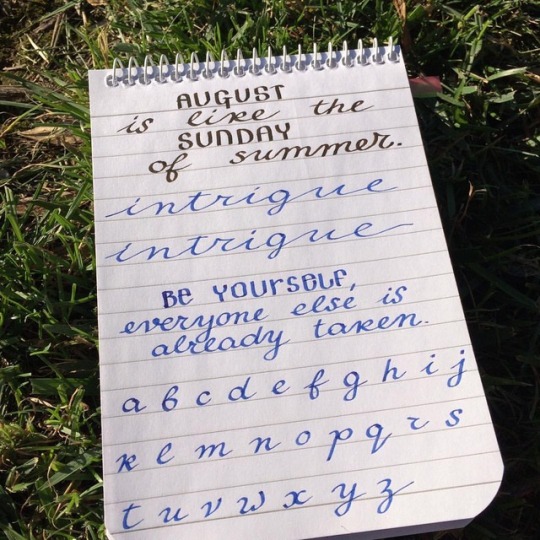 AUGUST
is like the
SUNDAY
of summer.
intrigue
intrigue
BE YOURSELF,
everyone else is
already taken.
a b c d e f g h i j
k l m n o p q r s
t u v w x y z